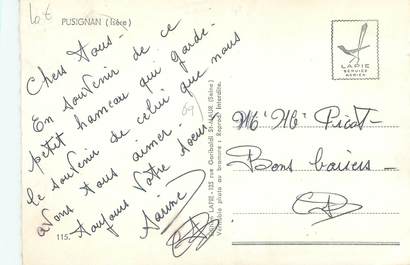 Lot
PUSIGNAN (Isère)
Chers tous -
En souvenir de ce
petit hameau qui garde
le souvenir de celui que nous
avons tous aimer -
toujours votre soeur
115.
LAPIE
SERVICE
AERIEN
LAPIE - 125 rue Garibaldi St-MAUR (Seine)
Véritable photo au bromure - Reprod. Interdite.
Mr Me Picot -
Bons baisers -